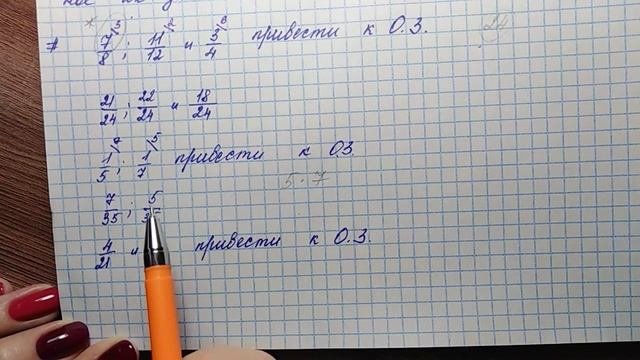 7/8 /3 ; 11/12 /2 и 3/4 /6 привести к О.З. 24
21/24 ; 22/24 и 18/24
1/5 /7 ; 1/7 /5 привести к О.З.
5 · 7
7/35 ; 5
4/21 и привести к О.З.